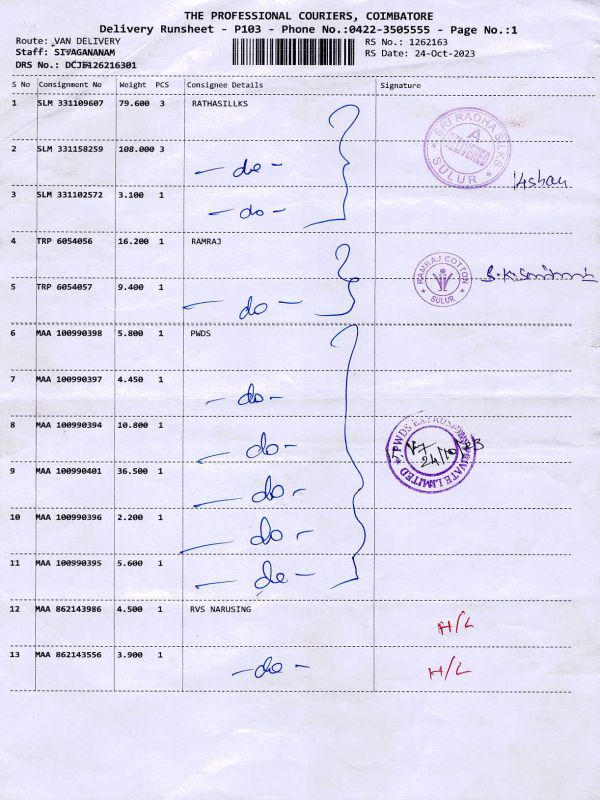 THE PROFESSIONAL COURIERS, COIMBATORE
Delivery Runsheet - P103 - Phone No.:0422-3505555 - Page No.:1
Route: VAN DELIVERY RS No.: 1262163
Staff: SIVAGANANAM RS Date: 24-Oct-2023
DRS No.: DCJB126216301
S No Consignment No Weight PCS Consignee Details Signature
1 SLM 331109607 79.600 3 RATHASILLKS
SRI RADHA SILKS
A
DELIVERED
SULUR
2 SLM 331158259 108.000 3 - do -
3 SLM 331102572 3.100 1 - do -
4 TRP 6054056 16.200 1 RAMRAJ
RAMRAJ COTTON
SULUR
5 TRP 6054057 9.400 1 - do -
6 MAA 100990398 5.800 1 PWDS
7 MAA 100990397 4.450 1 - do -
8 MAA 100990394 10.800 1 - do -
PWDS PRIVATE LIMITED
24/10
9 MAA 100990401 36.500 1 - do -
10 MAA 100990396 2.200 1 - do -
11 MAA 100990395 5.600 1 - do -
12 MAA 862143986 4.500 1 RVS NARUSING H/L
13 MAA 862143556 3.900 1 - do - H/L